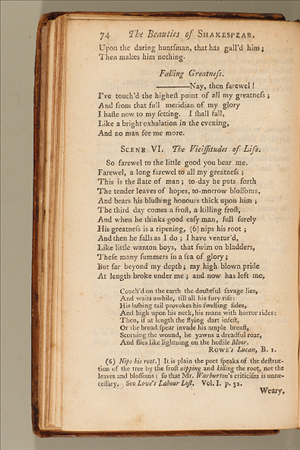 74 The Beauties of SHAKESPEAR.
Upon the daring huntſman, that has gall'd him;
Then makes him nothing.
Falling Greatneſs.
————Nay, then farewel!
I've touch'd the higheſt point of all my greatneſs;
And from that full meridian of my glory
I haſte now to my ſetting. I ſhall fall,
Like a bright exhalation in the evening,
And no man ſee me more.
SCENE VI. The Viciſſitudes of Life.
So farewel to the little good you bear me.
Farewel, a long farewel to all my greatneſs;
This is the ſtate of man; to-day he puts forth
The tender leaves of hopes, to-morrow bloſſoms,
And bears his bluſhing honours thick upon him;
The third day comes a froſt, a killing froſt,
And when he thinks, good eaſy man, full ſurely
His greatneſs is a ripening, (6) nips his root;
And then he falls as I do; I have ventur'd,
Like little wanton boys, that ſwim on bladders,
Theſe many ſummers in a ſea of glory;
But far beyond my depth; my high-blown pride
At length broke under me; and now has left me,
Couch'd on the earth the doubtful ſavage lies,
And waits awhile, till all his fury riſe:
His laſhing tail provokes his ſwelling ſides,
And high upon his neck, his mane with horror rides:
Then, if at length the flying dart infeſt,
Or the broad ſpear invade his ample breaſt,
Scorning the wound, he yawns a dreadful roar,
And flies like lightning on the hoſtile Moor.
ROWE's Lucan, B. 1.
(6) Nips his root.] It is plain the poet ſpeaks of the deſtruc-
tion of the tree by the froſt nipping and killing the root, not the
leaves and bloſſoms: ſo that Mr. Warburton's criticiſm is unne-
ceſſary. See Love's Labour Loſt. Vol. I. p. 31.
Weary,